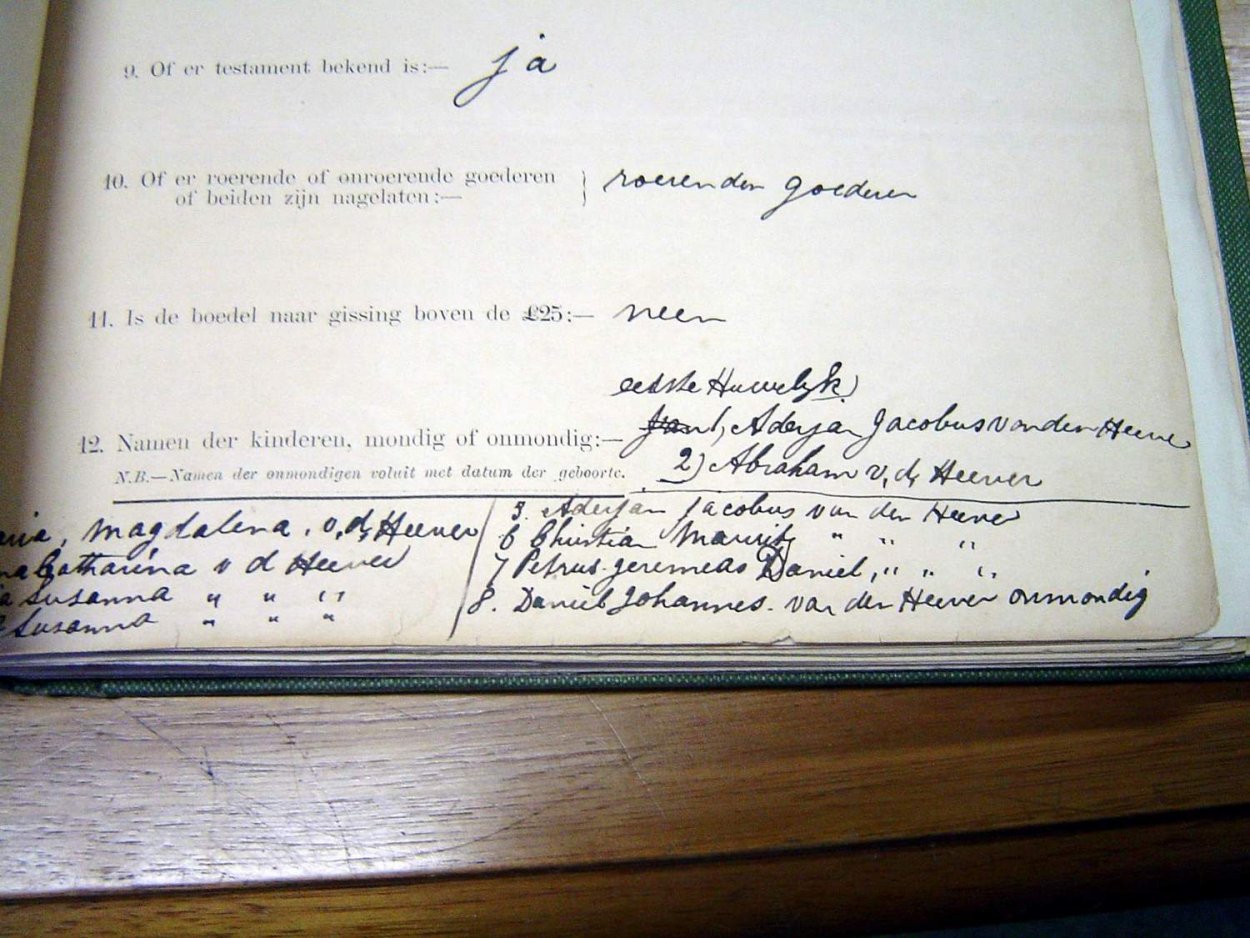 9. Of er testament bekend is:— ja
10. Of er roerende of onroerende goederen
of beiden zijn nagelaten:— } roerenden goederen
11. Is de boedel naar gissing boven de £25:— neen
eerste Huwelyk)
12. Namen der kinderen, mondig of onmondig:— 1, Aderjan Jacobus van den Heever
N.B.—Namen der onmondigen voluit met datum der geboorte. 2) Abraham v, d, Heever
Magdalena. v, d, Heever
Catharina v d Heever
Susanna " " "
Susanna " " "
5. Aderjan Jacobus van den Heever
6 Christian Maurits " " "
7 Petrus Jeremeas Daniel, " " "
8. Daniel Johannes. van den Heever onmondig